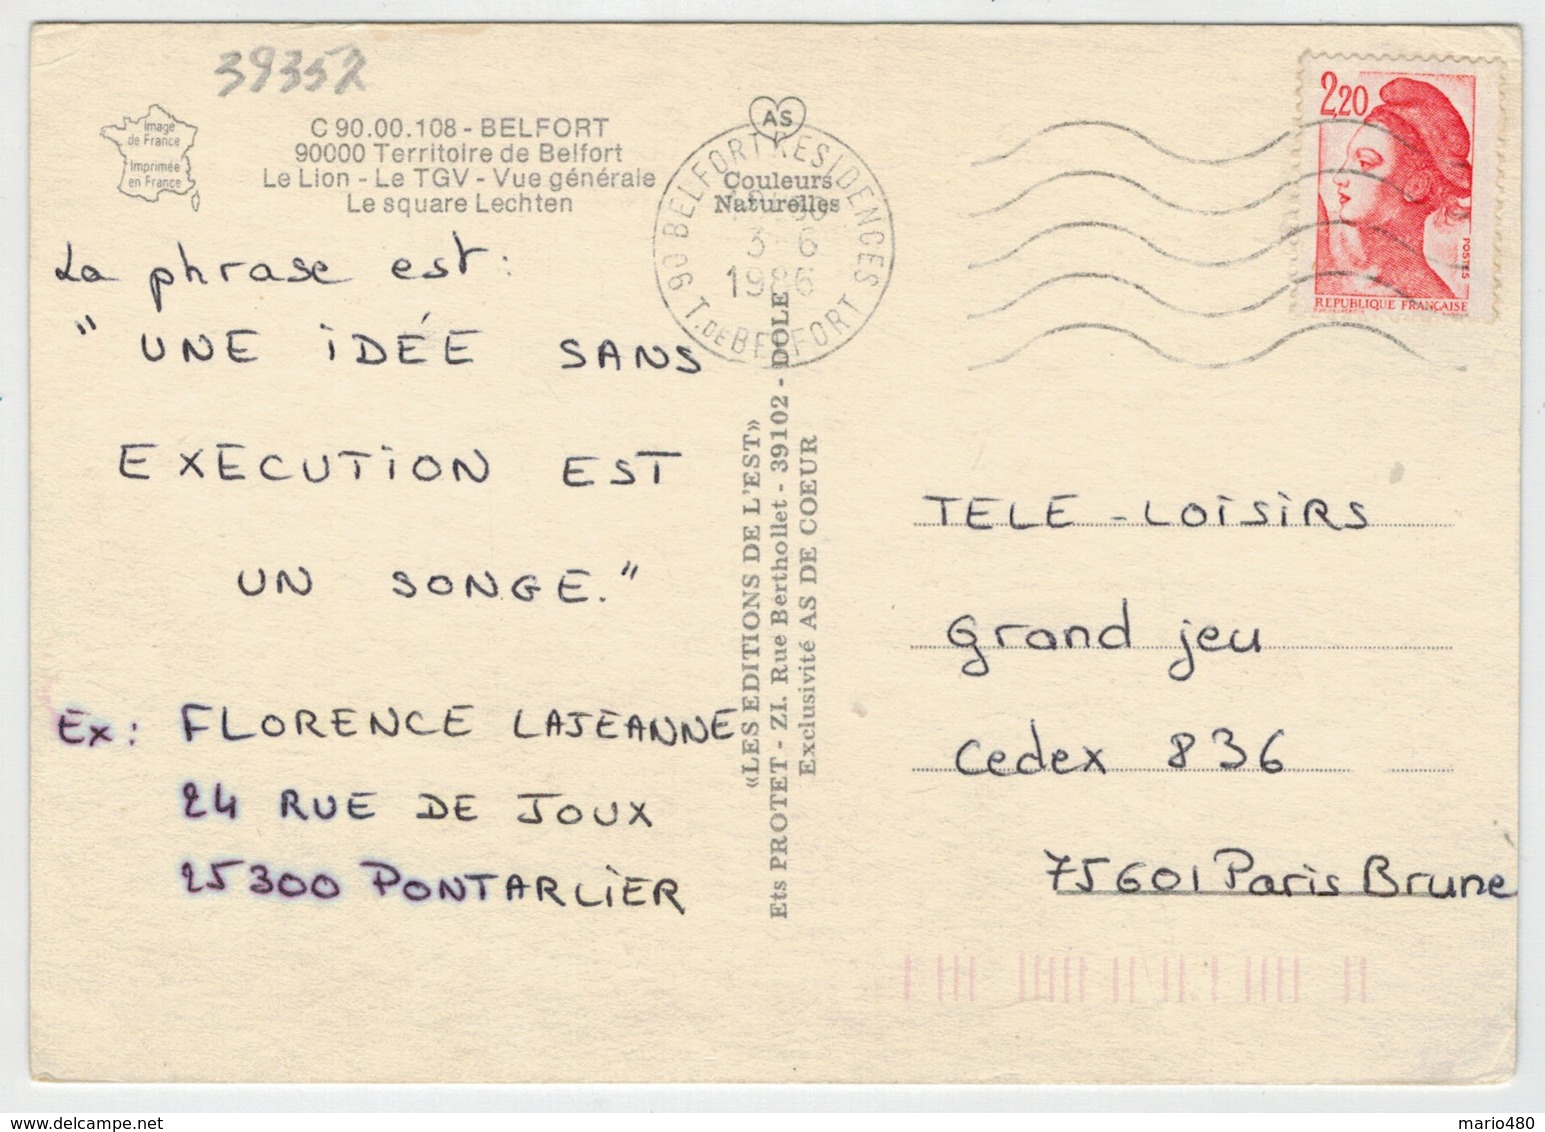 39352
Image
de France
Imprimée
en France
C 90.00.108 - BELFORT
90000 Territoire de Belfort
Le Lion - Le TGV - Vue générale
Le square Lechten
AS
Couleurs
Naturelles
90 BELFORT RESIDENCES
3 - 6
1986
T. DE BELFORT
2,20
POSTES
REPUBLIQUE FRANÇAISE
La phrase est:
" UNE IDÉE SANS
EXECUTION EST
UN SONGE."
Ex: FLORENCE LAJEANNE
24 RUE DE JOUX
25300 PONTARLIER
«LES EDITIONS DE L'EST»
Ets PROTET - ZI. Rue Berthollet - 39102 - DOLE
Exclusivité AS DE COEUR
TELE - LOISIRS
Grand jeu
Cedex 836
75601 Paris Brune
mario480